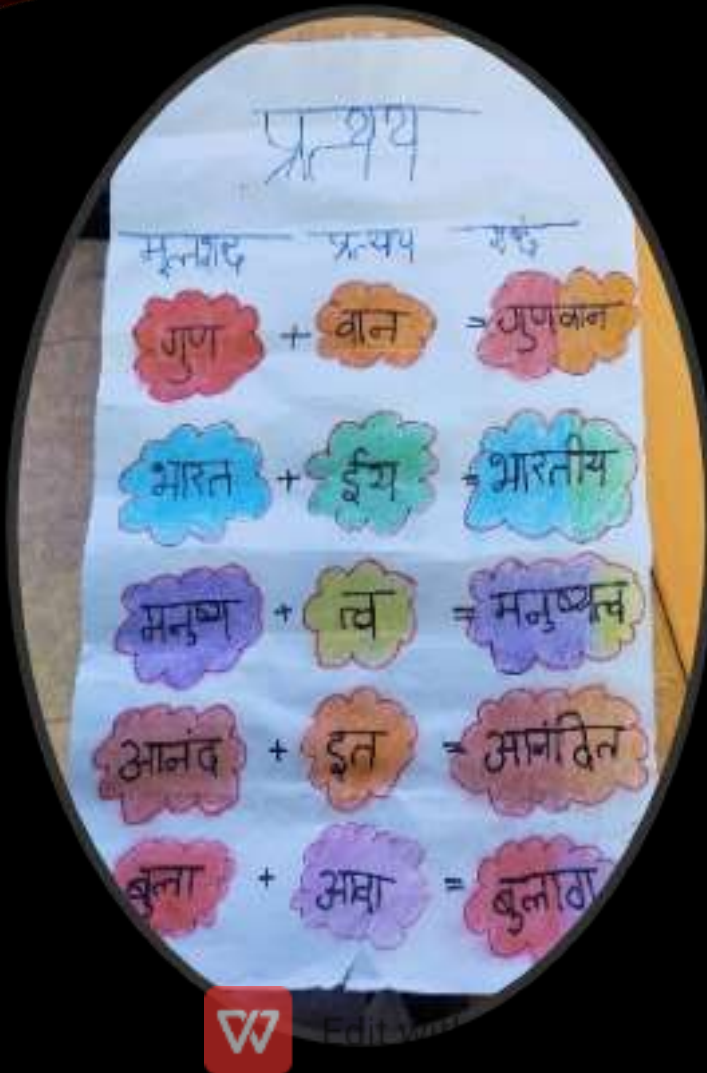 प्रत्यय
मूलशब्द प्रत्यय शब्द
गुण + वान = गुणवान
भारत + ईय = भारतीय
मनुष्य + त्व = मनुष्यत्व
आनंद + इत = आनंदित
बुला + आवा = बुलावा
W Edit with